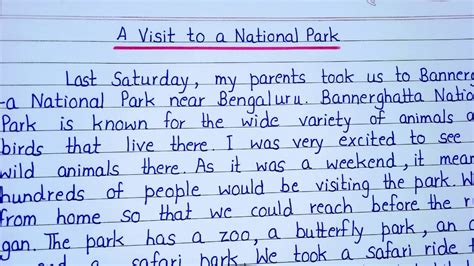 A Visit to a National Park
Last Saturday, my parents took us to Banner
-a National Park near Bengaluru. Bannerghatta Natio
Park is known for the wide variety of animals a
birds that live there. I was very excited to see
wild animals there. As it was a weekend, it mean
hundreds of people would be visiting the park. W
from home so that we could reach before the r
gan. The park has a zoo, a butterfly park, an
a safari park. We took a safari ride